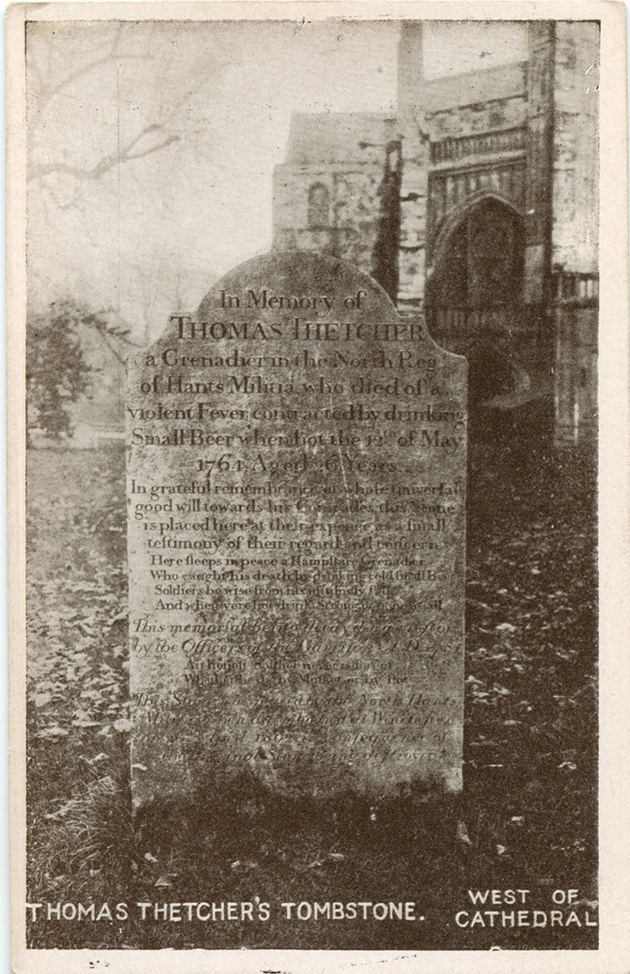 In Memory of
THOMAS THETCHER
a Grenadier in the North Reg.
of Hants Militia, who died of a
violent Fever contracted by drinking
Small Beer when hot the 12th of May
1764. Aged 26 Years.
In grateful remembrance of whose universal
good will towards his Comrades, this Stone
is placed here at their expence, as a small
testimony of their regard and concern.
Here sleeps in peace a Hampshire Grenadier,
Who caught his death by drinking cold small Beer
Soldiers be wise from his untimely fall
And when yere hot drink Strong or none at all.
This memorial being decay'd
by the Officers of the Garrison A.D.
An honest Soldier never is forgot
Whether he die by Musket or by Pot.
This Stone was by the North Hants
Militia when at Winchester
in consequence of
the original Stone being destroyed.
THOMAS THETCHER'S TOMBSTONE.
WEST OF
CATHEDRAL